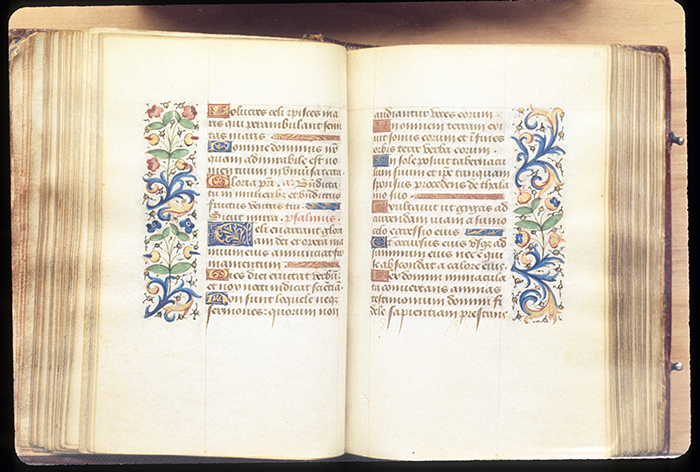 Volucres celi et pisces ma
ris qui perambulant semi
tas maris
Domine dominus nr̄
quam admirabile est no
men tuum in univ̄sa terra
Gloria pr̄i. a. Bn̄dicta
tu in mulieribꝫ et bn̄dictus
fructus ventris tui
Sicut mirra. psalmus.
Celi enarrant glori
am dei et opera ma
nuum eius annunciat fir
mamentum
Dies diei eructat verbū
et nox nocti indicat sciētiā.
Non sunt loquele neqꝫ
sermones: quorum non
audiantur voces eorum.
In omnem terram exi
vit sonus eorum et ī fines
orbis terre verba eorum.
In sole posuit tabernacu
lum suum et ip̄e tanquam
sponsus procedens de thala
mo suo
Exultavit ut gigas ad
currendam viam a summo
celo egressio eius
Et occursus eius usqꝫ ad
summum eius nec qui
se abscondat a calore eius.
Lex domini immacula
ta convertens animas
testimonium domini fi
dele sapientiam prestans